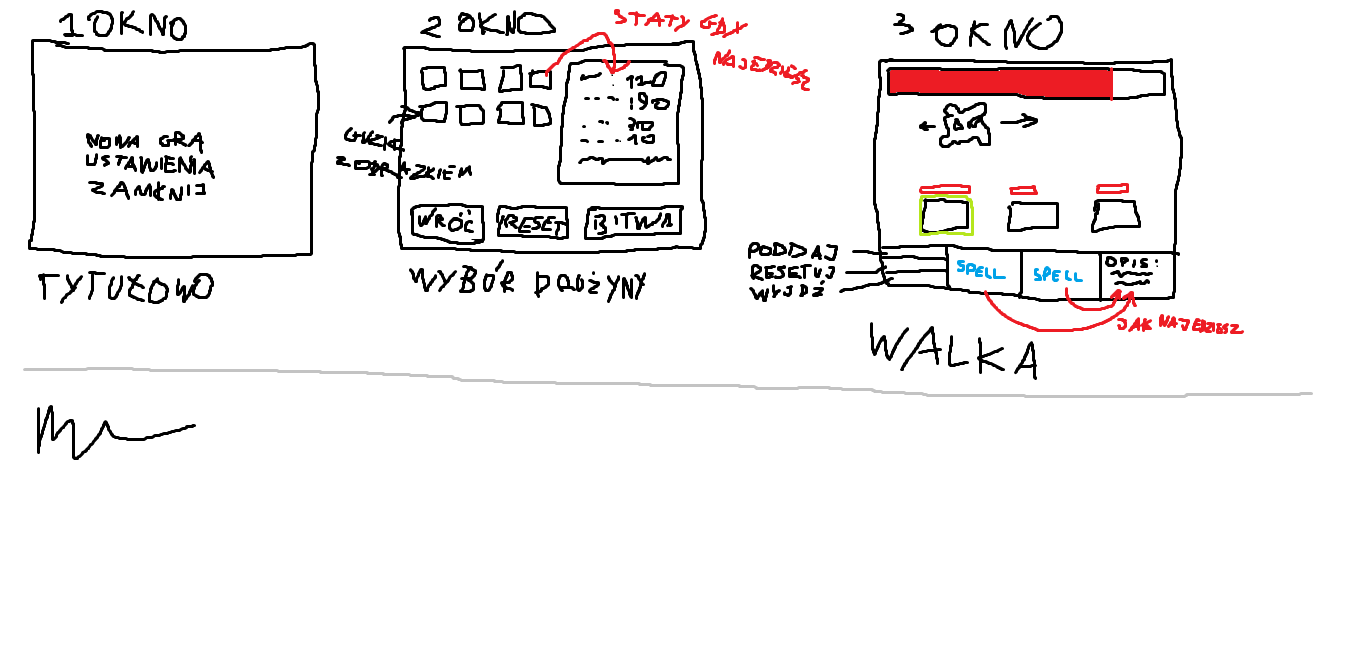 1 OKNO
NOWA GRA
USTAWIENIA
ZAMKNIJ
TYTUŁOWO
2 OKNO
STATY GDY
NAJEDZIESZ
120
190
30
10
GUZIKI
Z OBRAZKIEM
WRÓĆ
RESET
BITWA
WYBÓR DRUŻYNY
3 OKNO
PODDAJ
RESETUJ
WYJDŹ
SPELL
SPELL
OPIS:
JAK NAJEDZIESZ
WALKA